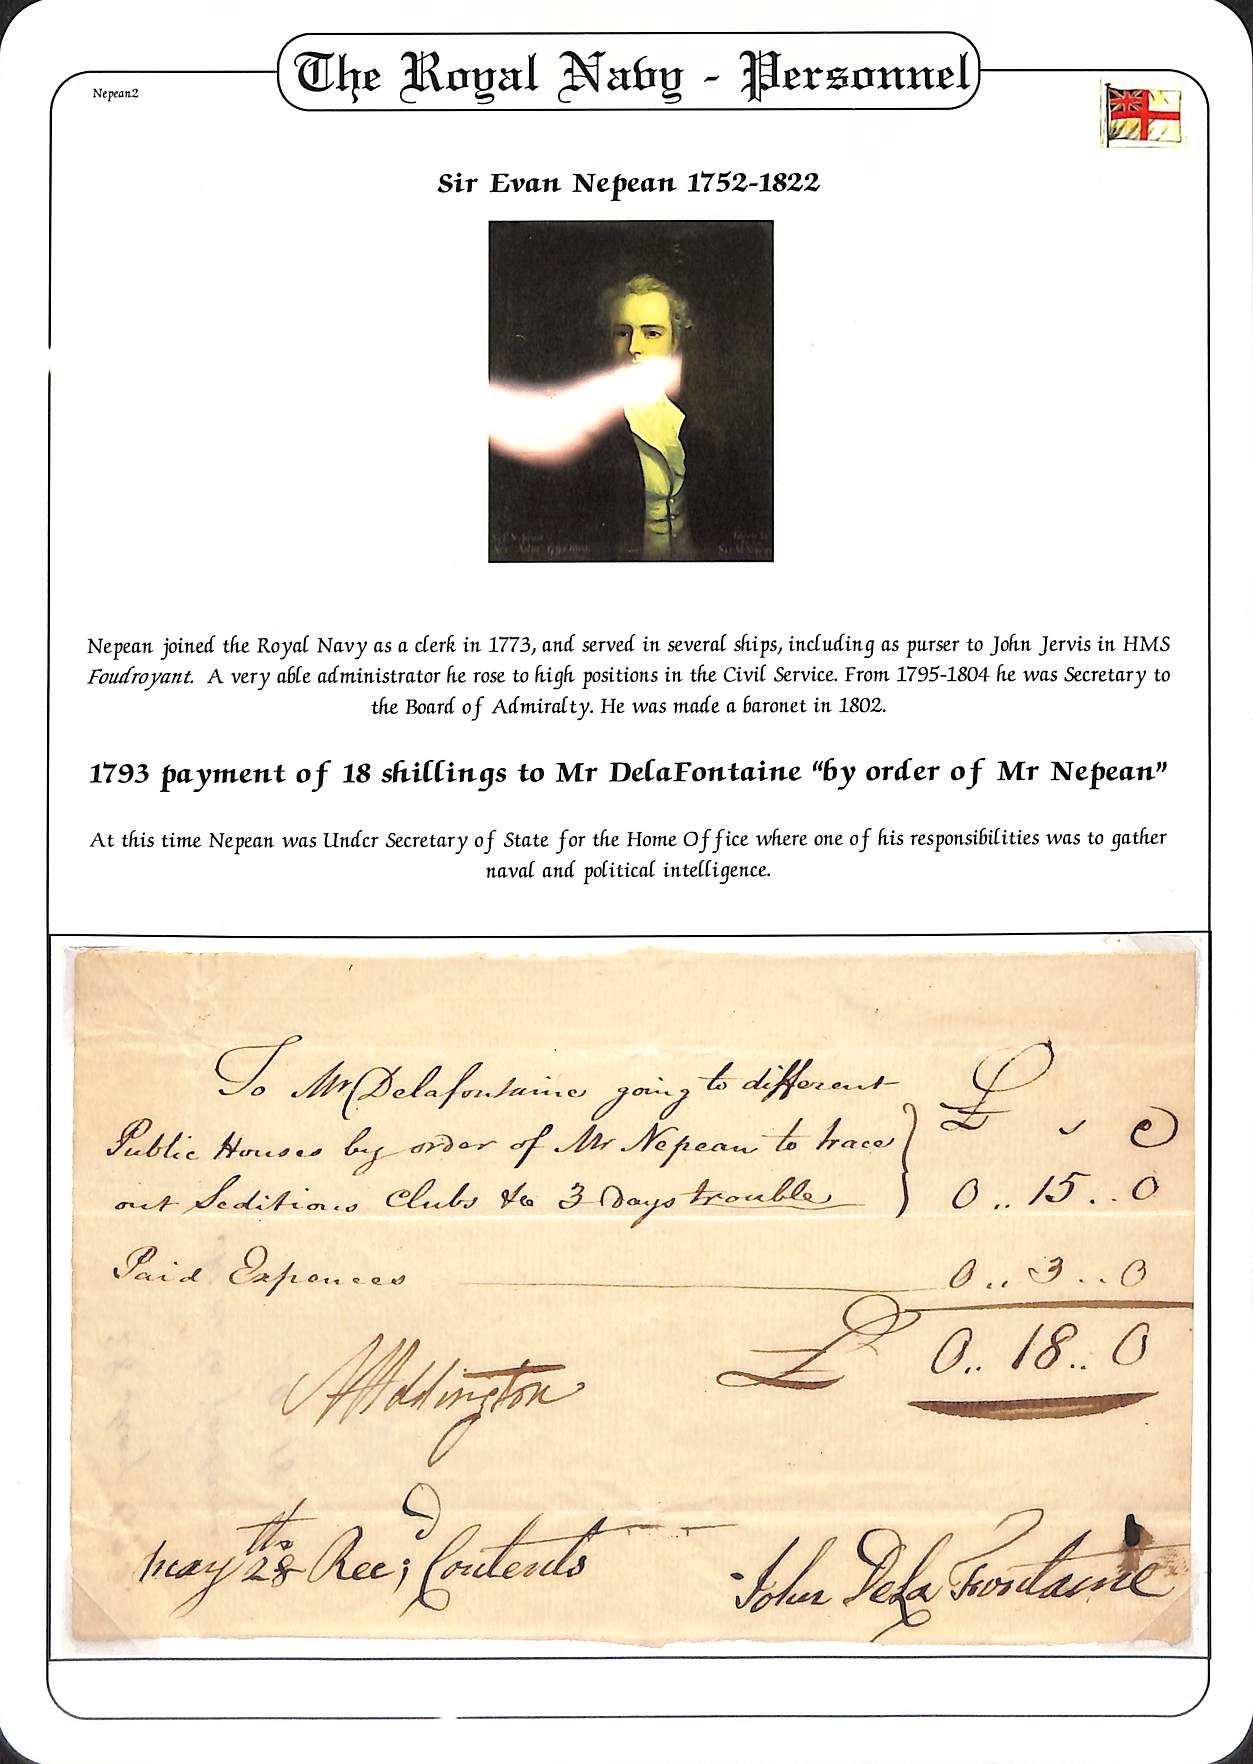 The Royal Navy - Personnel
Nepean2
Sir Evan Nepean 1752-1822
Nepean joined the Royal Navy as a clerk in 1773, and served in several ships, including as purser to John Jervis in HMS
Foudroyant. A very able administrator he rose to high positions in the Civil Service. From 1795-1804 he was Secretary to
the Board of Admiralty. He was made a baronet in 1802.
1793 payment of 18 shillings to Mr DelaFontaine “by order of Mr Nepean”
At this time Nepean was Under Secretary of State for the Home Office where one of his responsibilities was to gather
naval and political intelligence.
To Mr Delafontaine going to different
Public Houses by order of Mr Nepean to trace
out Seditious Clubs &c 3 Days trouble
£ s d
0 .. 15 .. 0
Paid Expences 0 .. 3 .. 0
£ 0 .. 18 .. 0
Addington
May 28th Recd; Contents
John DeLa Fontaine